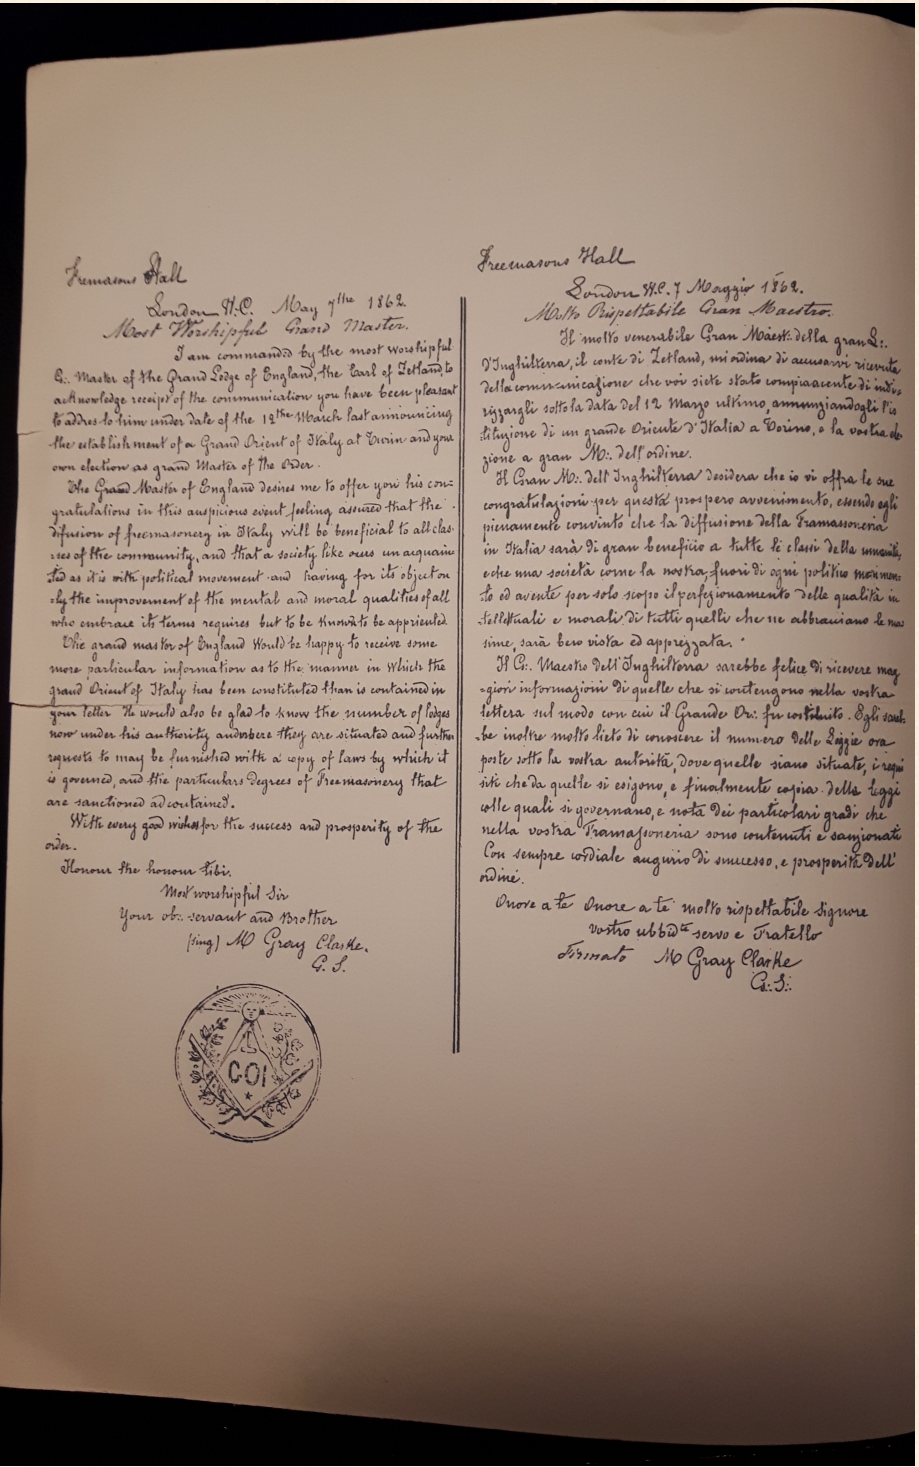 Fremasons Hall
London W.C. May 7the 1862.
Most Worshipful Grand Master.
I am commanded by the most worshipful
G:. Master of the Grand Lodge of England, the Earl of Zetland, to
acknowledge receipt of the communication you have been pleasant
to addres to him under date of the 12the March last announcing
the establishment of a Grand Orient of Italy at Turin and your
own election as grand Master of the Order.
The Grand Master of England desires me to offer you his con=
gratulations in this auspicious event feeling assured that the
difusion of freemasonery in Italy will be beneficial to all clas-
ses of the community, and that a society like ours unacquain-
ted as it is with political movement and having for its object on
-ly the improvement of the mental and moral qualities of all
who embrace its terms requires but to be known to be appriciated
The grand master of England Would be happy to receive some
more particular information as to the manner in which the
grand Orient of Italy has been constituted than is contained in
your letter He would also be glad to know the number of lodges
now under his authority andwhere they are situated and further
requests to may be furnished with a copy of laws by which it
is governed, and the particulars Degrees of Freemasonery that
are sanctioned ad contained.
With every good wishes for the success and prosperity of the
order.
Honour the honour tibi.
Most worshipful Sir
Your ob:. servant and Brother
(sing) M Gray Clarke.
G. S.
GOI
Freemasons Hall
London W.C. 7 Maggio 1862.
Molto Rispettabile Gran Maestro.
Il molto venerabile Gran Maest. della gran L:.
d'Inghilterra, il conte di Zetland, mi ordina di accusarvi ricevuta
della communicazione che voi siete stato compiacente di indi-
rizzargli sotto la data del 12 Marzo ultimo, annunziandogli l'is
tituzione di un grande Oriente d'Italia a Torino, e la vostra ele-
zione a gran M:. dell'ordine.
Il Gran M:. dell'Inghilterra desidera che io vi offra le sue
congratulazioni per questa prospero avvenimento, essendo egli
pienamente convinto che la diffusione della Framassoneria
in Italia sarà di gran beneficio a tutte le classi della umanità,
e che una società come la nostra, fuori di ogni politico movimen-
to ed avente per solo scopo il perfezionamento delle qualità in
tellettuali e morali di tutti quelli che ne abbracciano le mas
sime, sarà bene vista ed apprezzata.
Il G:. Maestro dell'Inghilterra sarebbe felice di ricevere mag
-giori informazioni di quelle che si contengono nella vostra
lettera sul modo con cui il Grande Or:. fu costituito. Egli sareb-
-be inoltre molto lieto di conoscere il numero delle Loggie ora
poste sotto la vostra autorità, dove quelle siano situate, i requi
siti che da quelle si esigono, e finalmente copia della leggi
colle quali si governano, e nota dei particolari gradi che
nella vostra Framassoneria sono contenuti e sanzionati
Con sempre cordiale augurio di successo, e prosperità dell'
ordine.
Onore a te Onore a te molto rispettabile Signore
Vostro ubbidte servo e Fratello
Firmato M Gray Clarke
G:. S:.